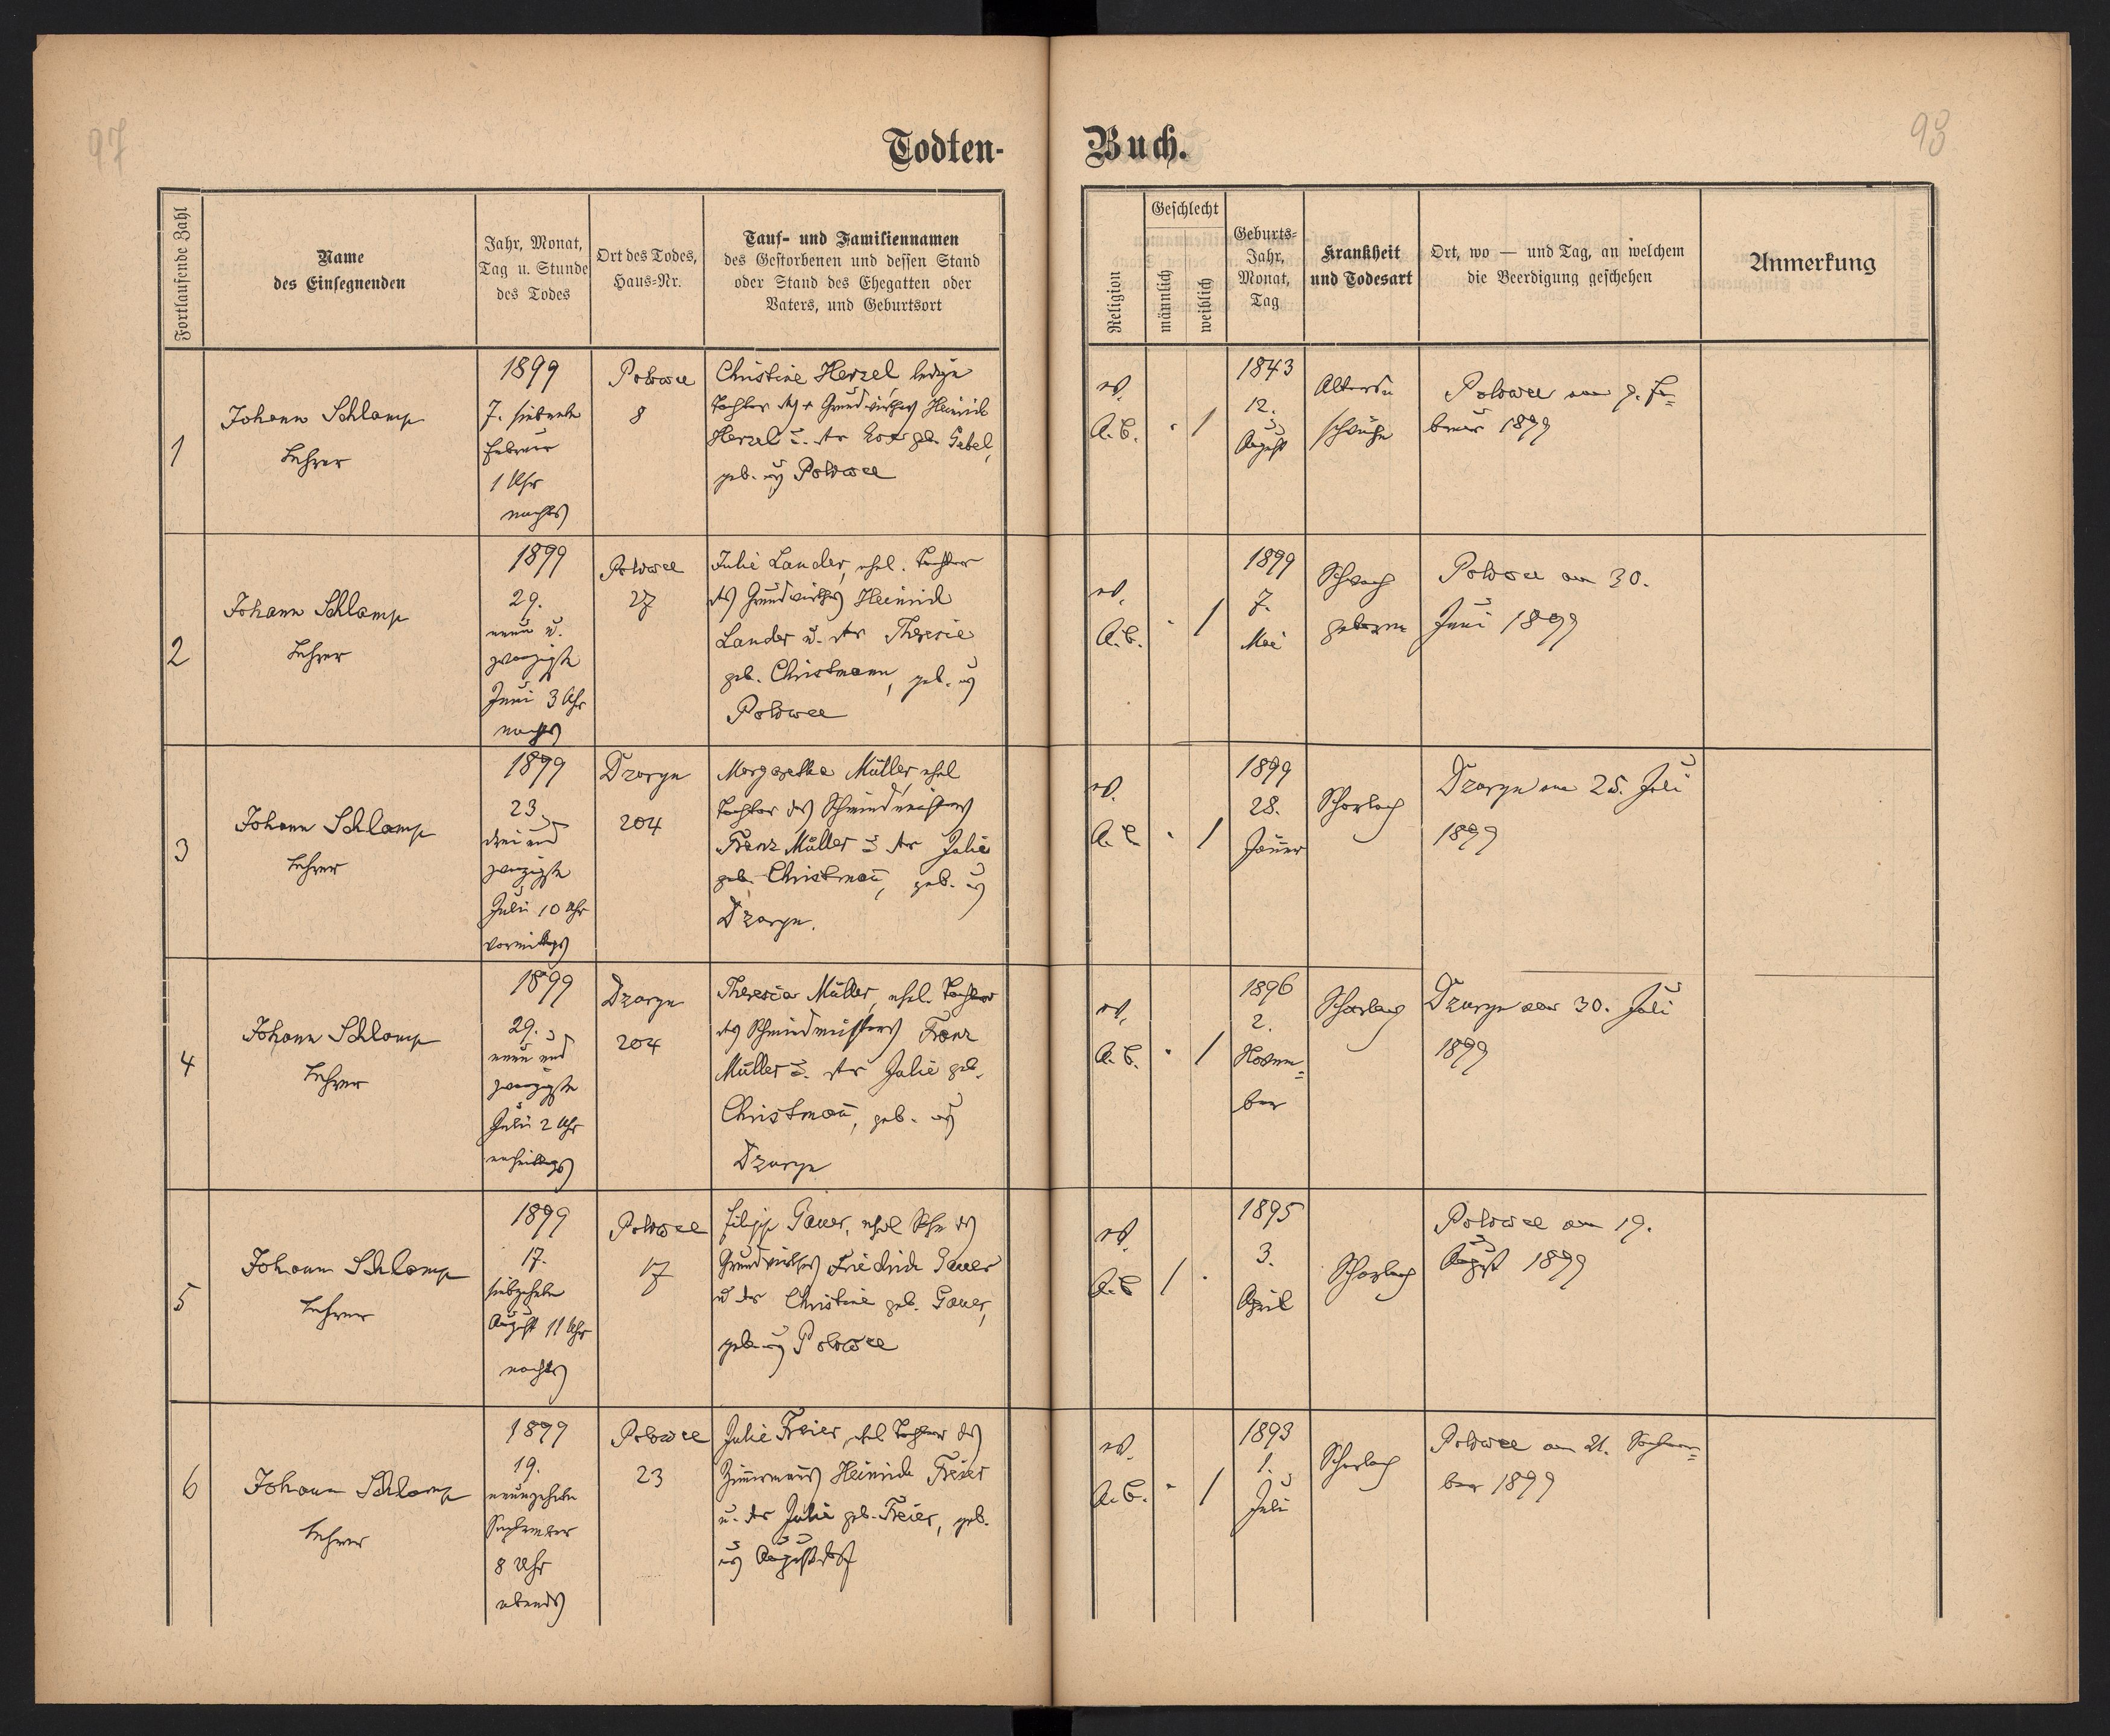 97
98
Todten-
Buch.
Fortlaufende Zahl
Name
des Einsegnenden
Jahr, Monat,
Tag u. Stunde
des Todes
Ort des Todes,
Haus-Nr.
Tauf- und Familiennamen
des Gestorbenen und dessen Stand
oder Stand des Ehegatten oder
Vaters, und Geburtsort
Religion
Geschlecht
männlich
weiblich
Geburts-
Jahr,
Monat,
Tag
Krankheit
und Todesart
Ort, wo — und Tag, an welchem
die Beerdigung geschehen
Anmerkung
1
Johann Schlamp
Lehrer
1899
7. siebente
Februar
1 Uhr
nachts
Polowce
8
Christine Herzel ledige
Tochter des + Grundwirthes Heinrich
Herzel u. der geb. Gabel,
geb. aus Polowce
ev.
A. C.
1
1843
12.
August
Alters-
schwäche
Polowce am 9. Fe-
bruar 1899
2
Johann Schlamp
Lehrer
1899
29.
neun u.
zwanzigste
Juni 3 Uhr
nachts
Polowce
27
Julie Lander, ehel. Tochter
des Grundwirthes Heinrich
Lander u. der Theresie
geb. Christmann, geb. aus
Polowce
ev.
A. C.
1
1899
7.
Mai
Schwach
geboren
Polowce am 30.
Juni 1899
3
Johann Schlamp
Lehrer
1899
23.
drei und
zwanzigste
Juli 10 Uhr
vormittags
Dzoryn
204
Margaretha Müller, ehel
Tochter des Schmiedmeisters
Franz Müller u. der Julie
geb. Christmañ, geb. aus
Dzoryn.
ev.
A. C
1
1899
28.
Jänner
Scharlach
Dzoryn am 25. Juli
1899
4
Johann Schlamp
Lehrer
1899
29.
neun und
zwanzigste
Juli 2 Uhr
nachmittags
Dzoryn
204
Theresia Müller, ehel. Tochter
des Schmiedmeisters Franz
Müller u. der Julie geb.
Christmañ, geb. aus
Dzoryn
ev.
A. C.
1
1896
2.
Novem-
ber
Scharlach
Dzoryn am 30. Juli
1899
5
Johann Schlamp
Lehrer
1899
17.
siebzehnte
August 11 Uhr
nachts
Polowce
17
Filipp Gauer, ehel Sohn des
Grundwirthes Friedrich Gauer
u der Christine geb. Gauer,
geb. aus Polowce
ev.
A. C
1
1895
3.
April
Scharlach
Polowce am 19.
August 1899
6
Johann Schlamp
Lehrer
1899
19.
neunzehnte
September
8 Uhr
abends
Polowce
23
Julie Freier, ehel Tochter des
Zimmermanns Heinrich Freier
u. der Julie geb. Freier, geb.
aus Augustdorf
ev.
A. C.
1
1893
1.
Juli
Scharlach
Polowce am 21. Septem-
ber 1899